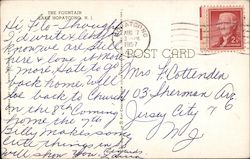 THE FOUNTAIN
LAKE HOPATCONG, N. J.
Hi Flo - Thought
I'd write & let you
know we are still
here & love it more
& more. Hate to go
back home. Will
be back to Church
on the 8th. Coming
home the 7th
Billy makes some
cute things in
will show you.
POST CARD
AUG
1957
2¢
Mrs F. Cottender
103 Sherman Ave
Jersey City
NJ